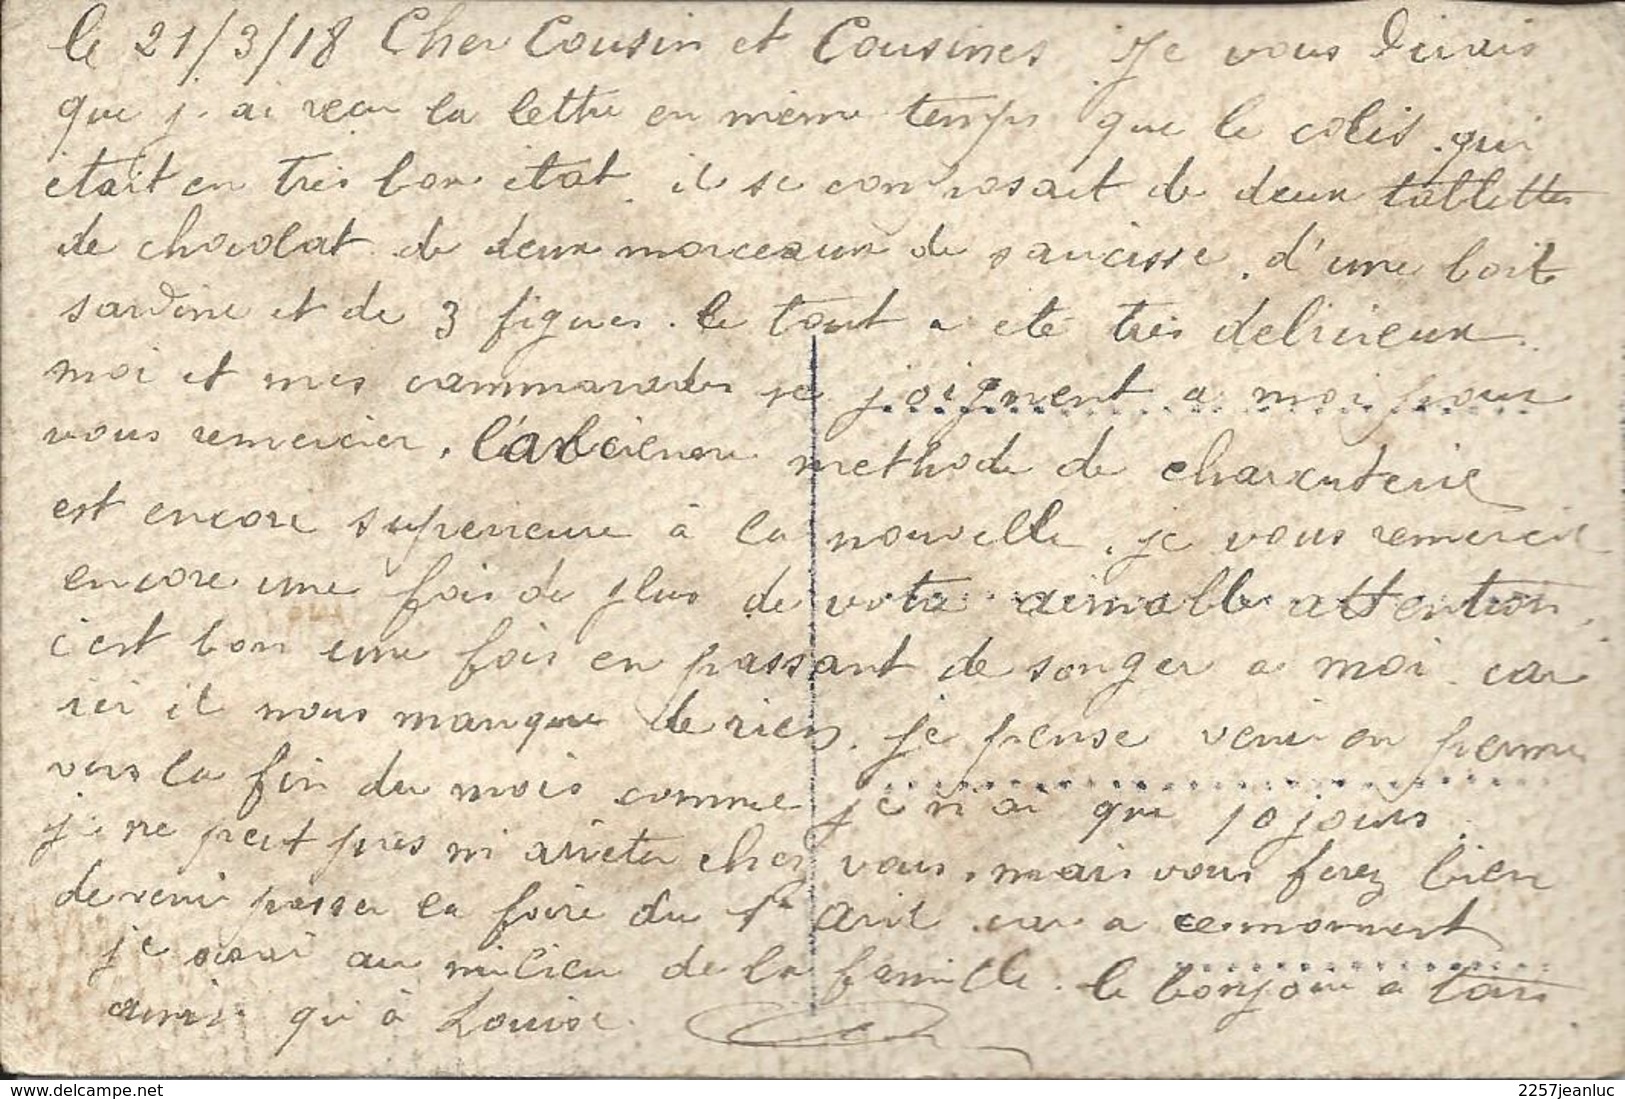 le 21/3/18 Cher Cousin et Cousines Je vous dirais
que j. ai recu la lettre en meme temps que le colis. qui
etait en tres bon etat. il se composait de deux tablettes
de chocolat de deux morceaux de saucisse. d'une boit
sardine et de 3 figues. le tout a eté tres delicieux.
moi et mes cammarades se joignent a moi pour
vous remercier. l'ancienne methode de charcuterie
est encore superieure à la nouvelle. je vous remercie
encore une fois de plus de votre aimable attention.
c'est bon une fois en passant de songer a moi. car
ici il nous manque de rien. je pense venir en perme
vers la fin du mois comme je n'ai que 10 jours.
je ne peut pas m'arreter cher vous. mais vous ferez bien
de venir passer la foire du 1er avril. car a ce moment
je serai au milieu de la famille. le bonjour a tous
ainsi qu'à Louise.
delcampe.net
2257jeanluc